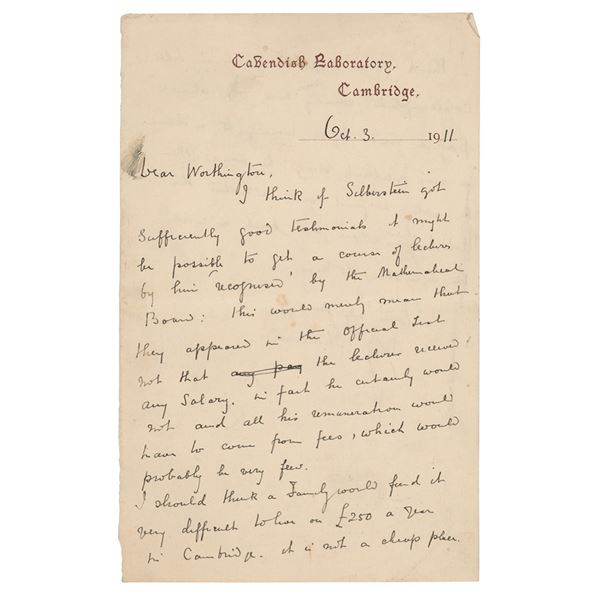 Cavendish Laboratory,
Cambridge.
Oct. 3. 1911
Dear Worthington,
I think if Silberstein got
sufficiently good testimonials it might
be possible to get a course of lectures
by him 'recognised' by the Mathematical
Board: this would merely mean that
they appeared in the Official List
not that any pay the lecturer received
any Salary. In fact he certainly would
not and all his remuneration would
have to come from fees, which would
probably be very few.
I should think a Family would find it
very difficult to live on £250 a year
in Cambridge. it is not a cheap place.